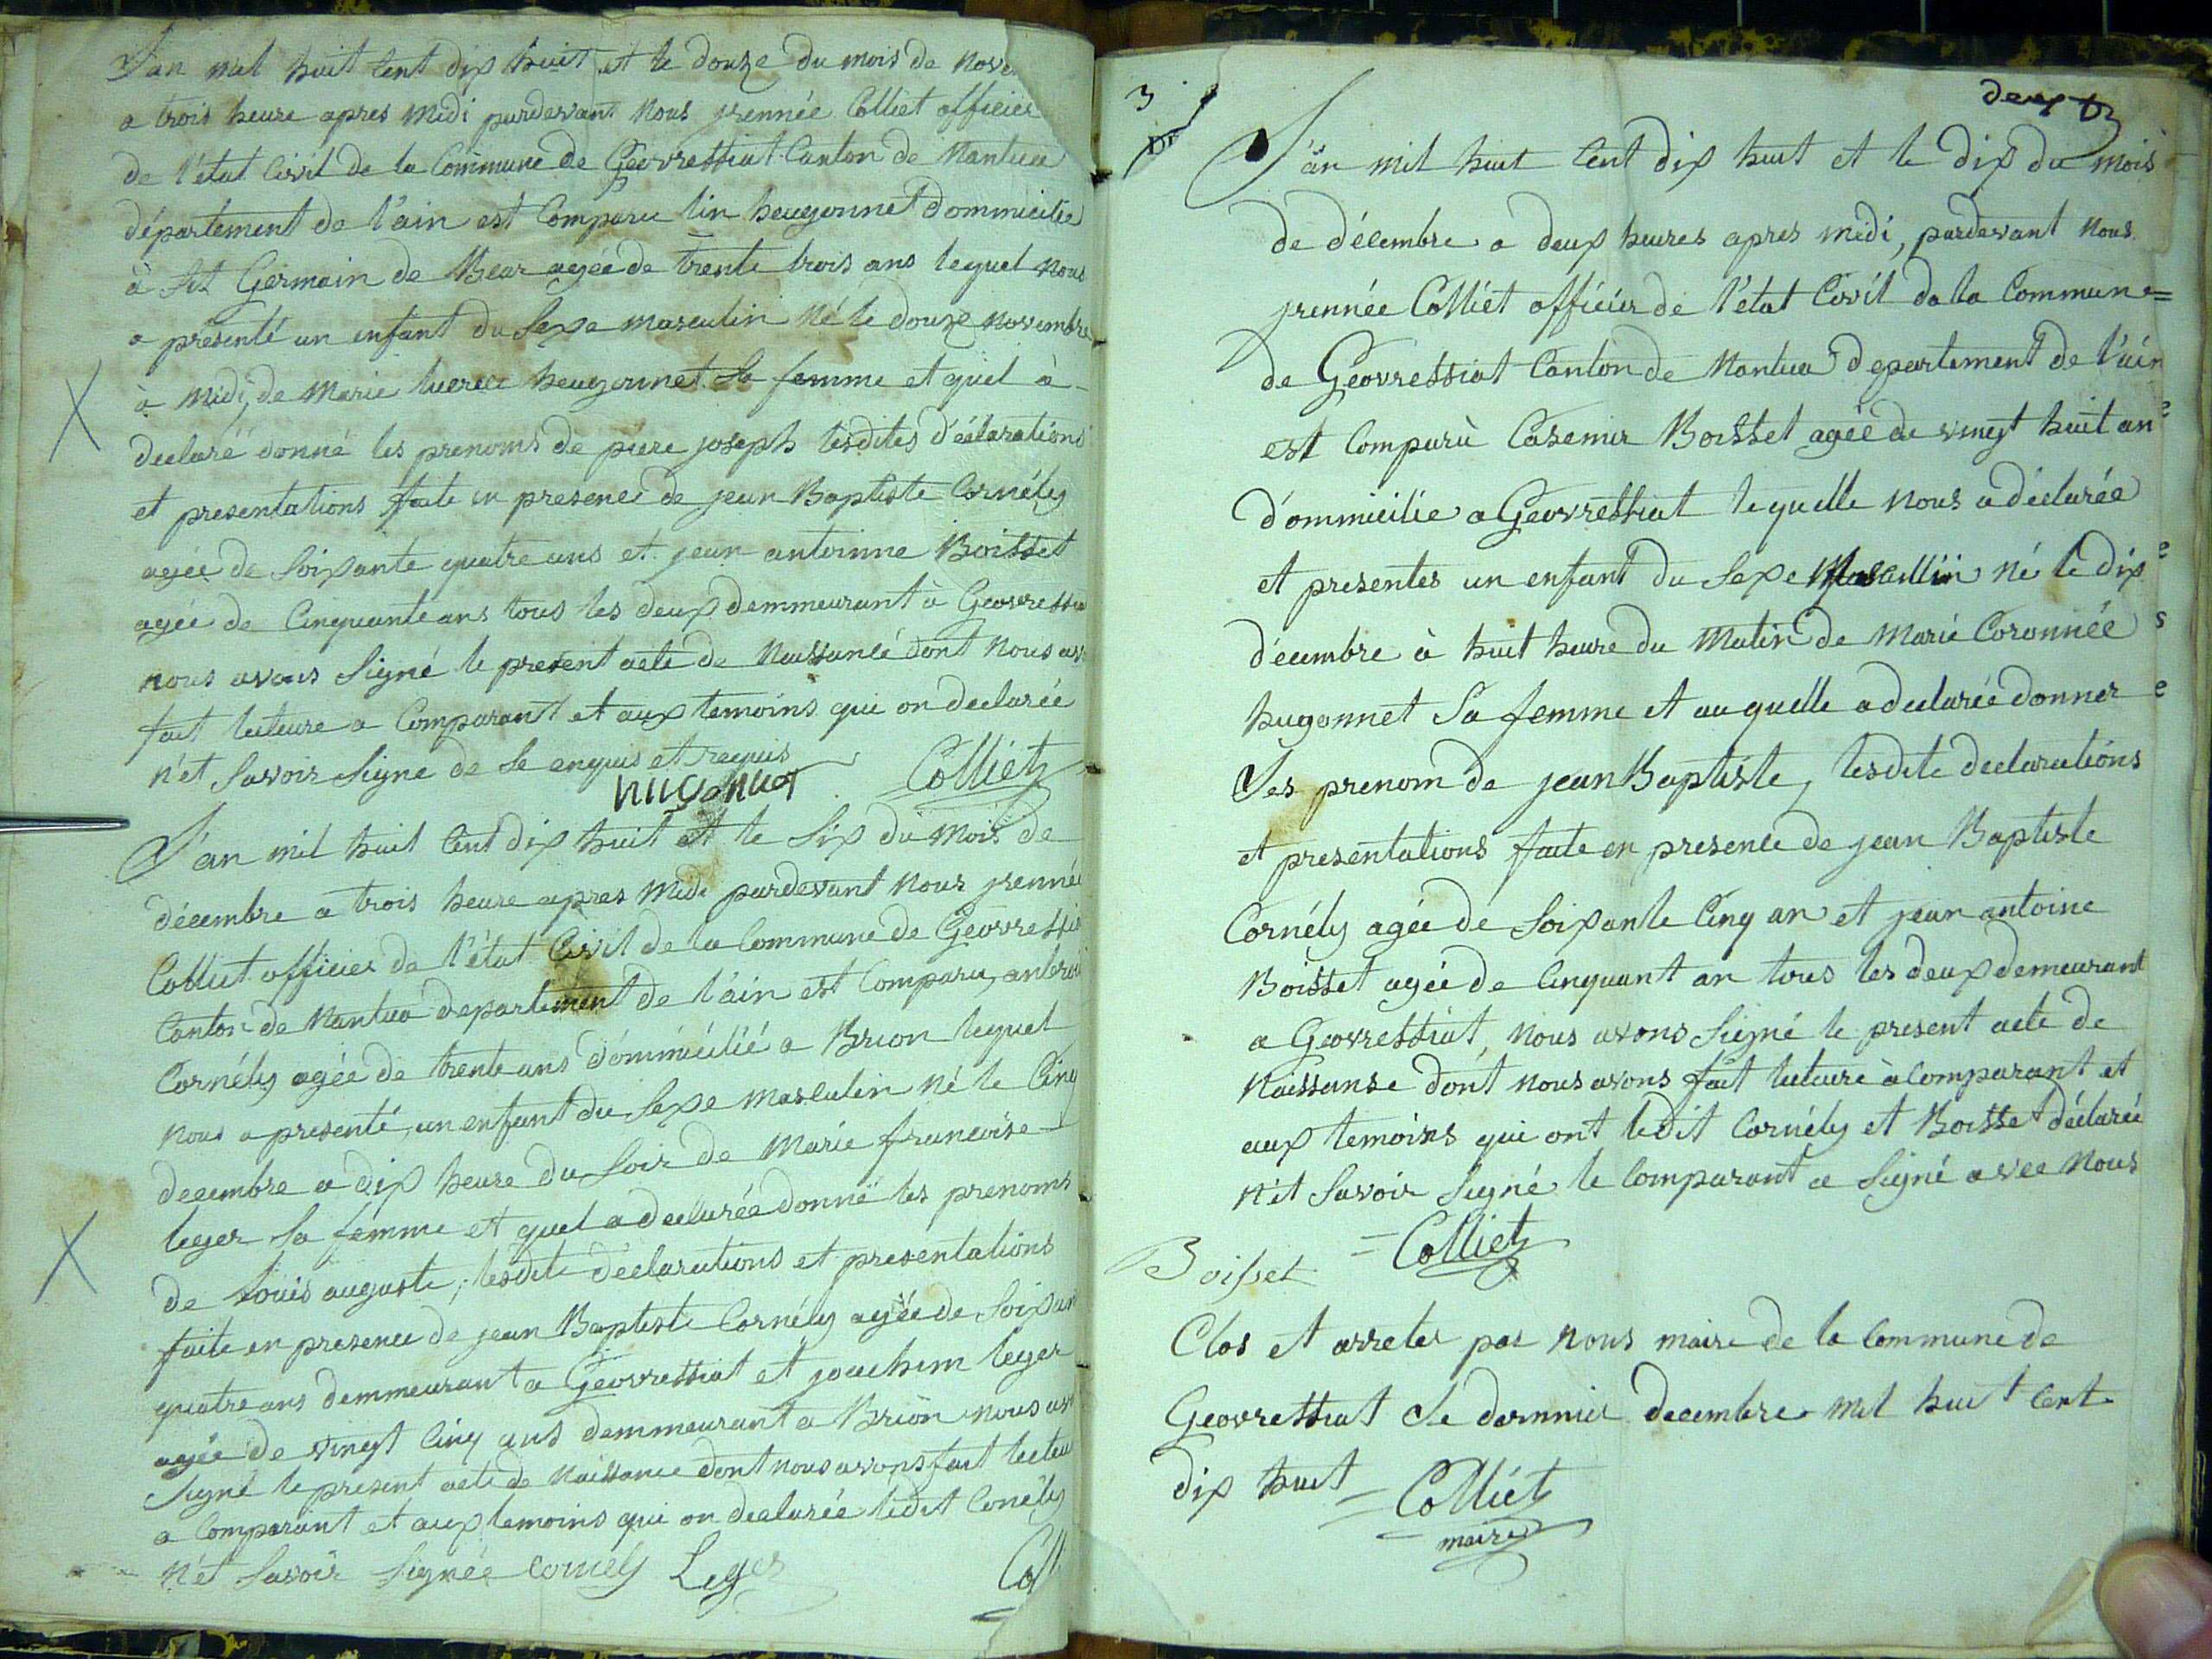 L'an mil huit Cent dix huit et le douze du mois de nove
a trois heure apres midi pardevant nous jrennée Colliet officier
de l'état Civil de la Commune de Geovressiat Canton de Nantua
département de l'ain est Comparu lin heugonnet dommicilié
à st Germain de Bear agée de trente trois ans lequel nous
a présenté un enfant du Sexe masculin né le douze novembre
à midi, de Marie lucrece heugonnet Sa femme et quel à
declaré donné les prenoms de piere joseph lesdites déclarations
et presentations faite en presence de jean Baptiste Cornély
agée de Soixante quatre ans et jean antoinne Boisset
agée de Cinquante ans tous les deux demmeurant à Geovressia
nous avons Signé le present acte de Naissancé dont nous av
fait lecteure a Comparant et aux temoins qui on declarée
n'et Savoir Signe de Se enquis et requis
hugonnet Colliet
L'an mil huit Cent dix huit et le Six du mois de
décembre a trois heure apres midi pardevant nous jrennée
Colliet officier de l'état Civil de la Commune de Geovressia
Canton de Nantua departement de l'ain est Comparu, antroi
Cornély agée de trente ans dommécilié a Brion lequel
nous a presenté, un enfant du Sexe masculin né le Cinq
decembre a dix heure du Soir de Marie francoise
leger Sa femme et quel a declarée donné les prenoms
de Louis auguste, lesdite déclarations et presentations
faite en presence de jean Baptiste Cornély agée de Soixan
quatre ans demmeurant a Geovressiat et joachim leger
agée de vingt Cinq ans demmeurant a Brion nous av
Signé le present acte de Naissance dont nous avons fait lecteu
a Comparant et aux temoins qui on declarée ledit Conély
n'et Savoir Signée Cornely Leger Coll
3
deux
L'an mil huit Cent dix huit et le dix du mois
de décembre a deux heures apres midi, pardevant nous
jrennée Colliet officiér de l'état Civil de la Commune=
de Géovressiat Canton de Nantua departement de l'ain
est Comparù Casemir Boisset agée de vingt huit an
d'ommicilié a Geovressiat lequelle nous a déclarée
et presentes un enfant du Sexe Masculin né le dix
décembre à huit heure du Matin de Marie Coronnée
hugonnet Sa femme et auquelle a declarée donner
Les prenom de jean Baptiste, lesdite declarations
et presentations faite en presence de jean Baptiste
Cornély agée de Soixante Cinq an et jean antoine
Boisset agée de Cinquant an tous les deux demeurant
a Geovressiat, nous avons Signé le present acte de
Naissanse dont nous avons fait lecteure à Comparant et
aux temoins qui ont ledit Cornély et Boisset déclarée
n'et Savoir Signé le Comparant a Signé avec nous
Boisset = Colliet
Clos et arreter par nous maire de la Commune de
Geovressiat Le dernnier decembre mil huit Cent
dix huit = Colliet
maire